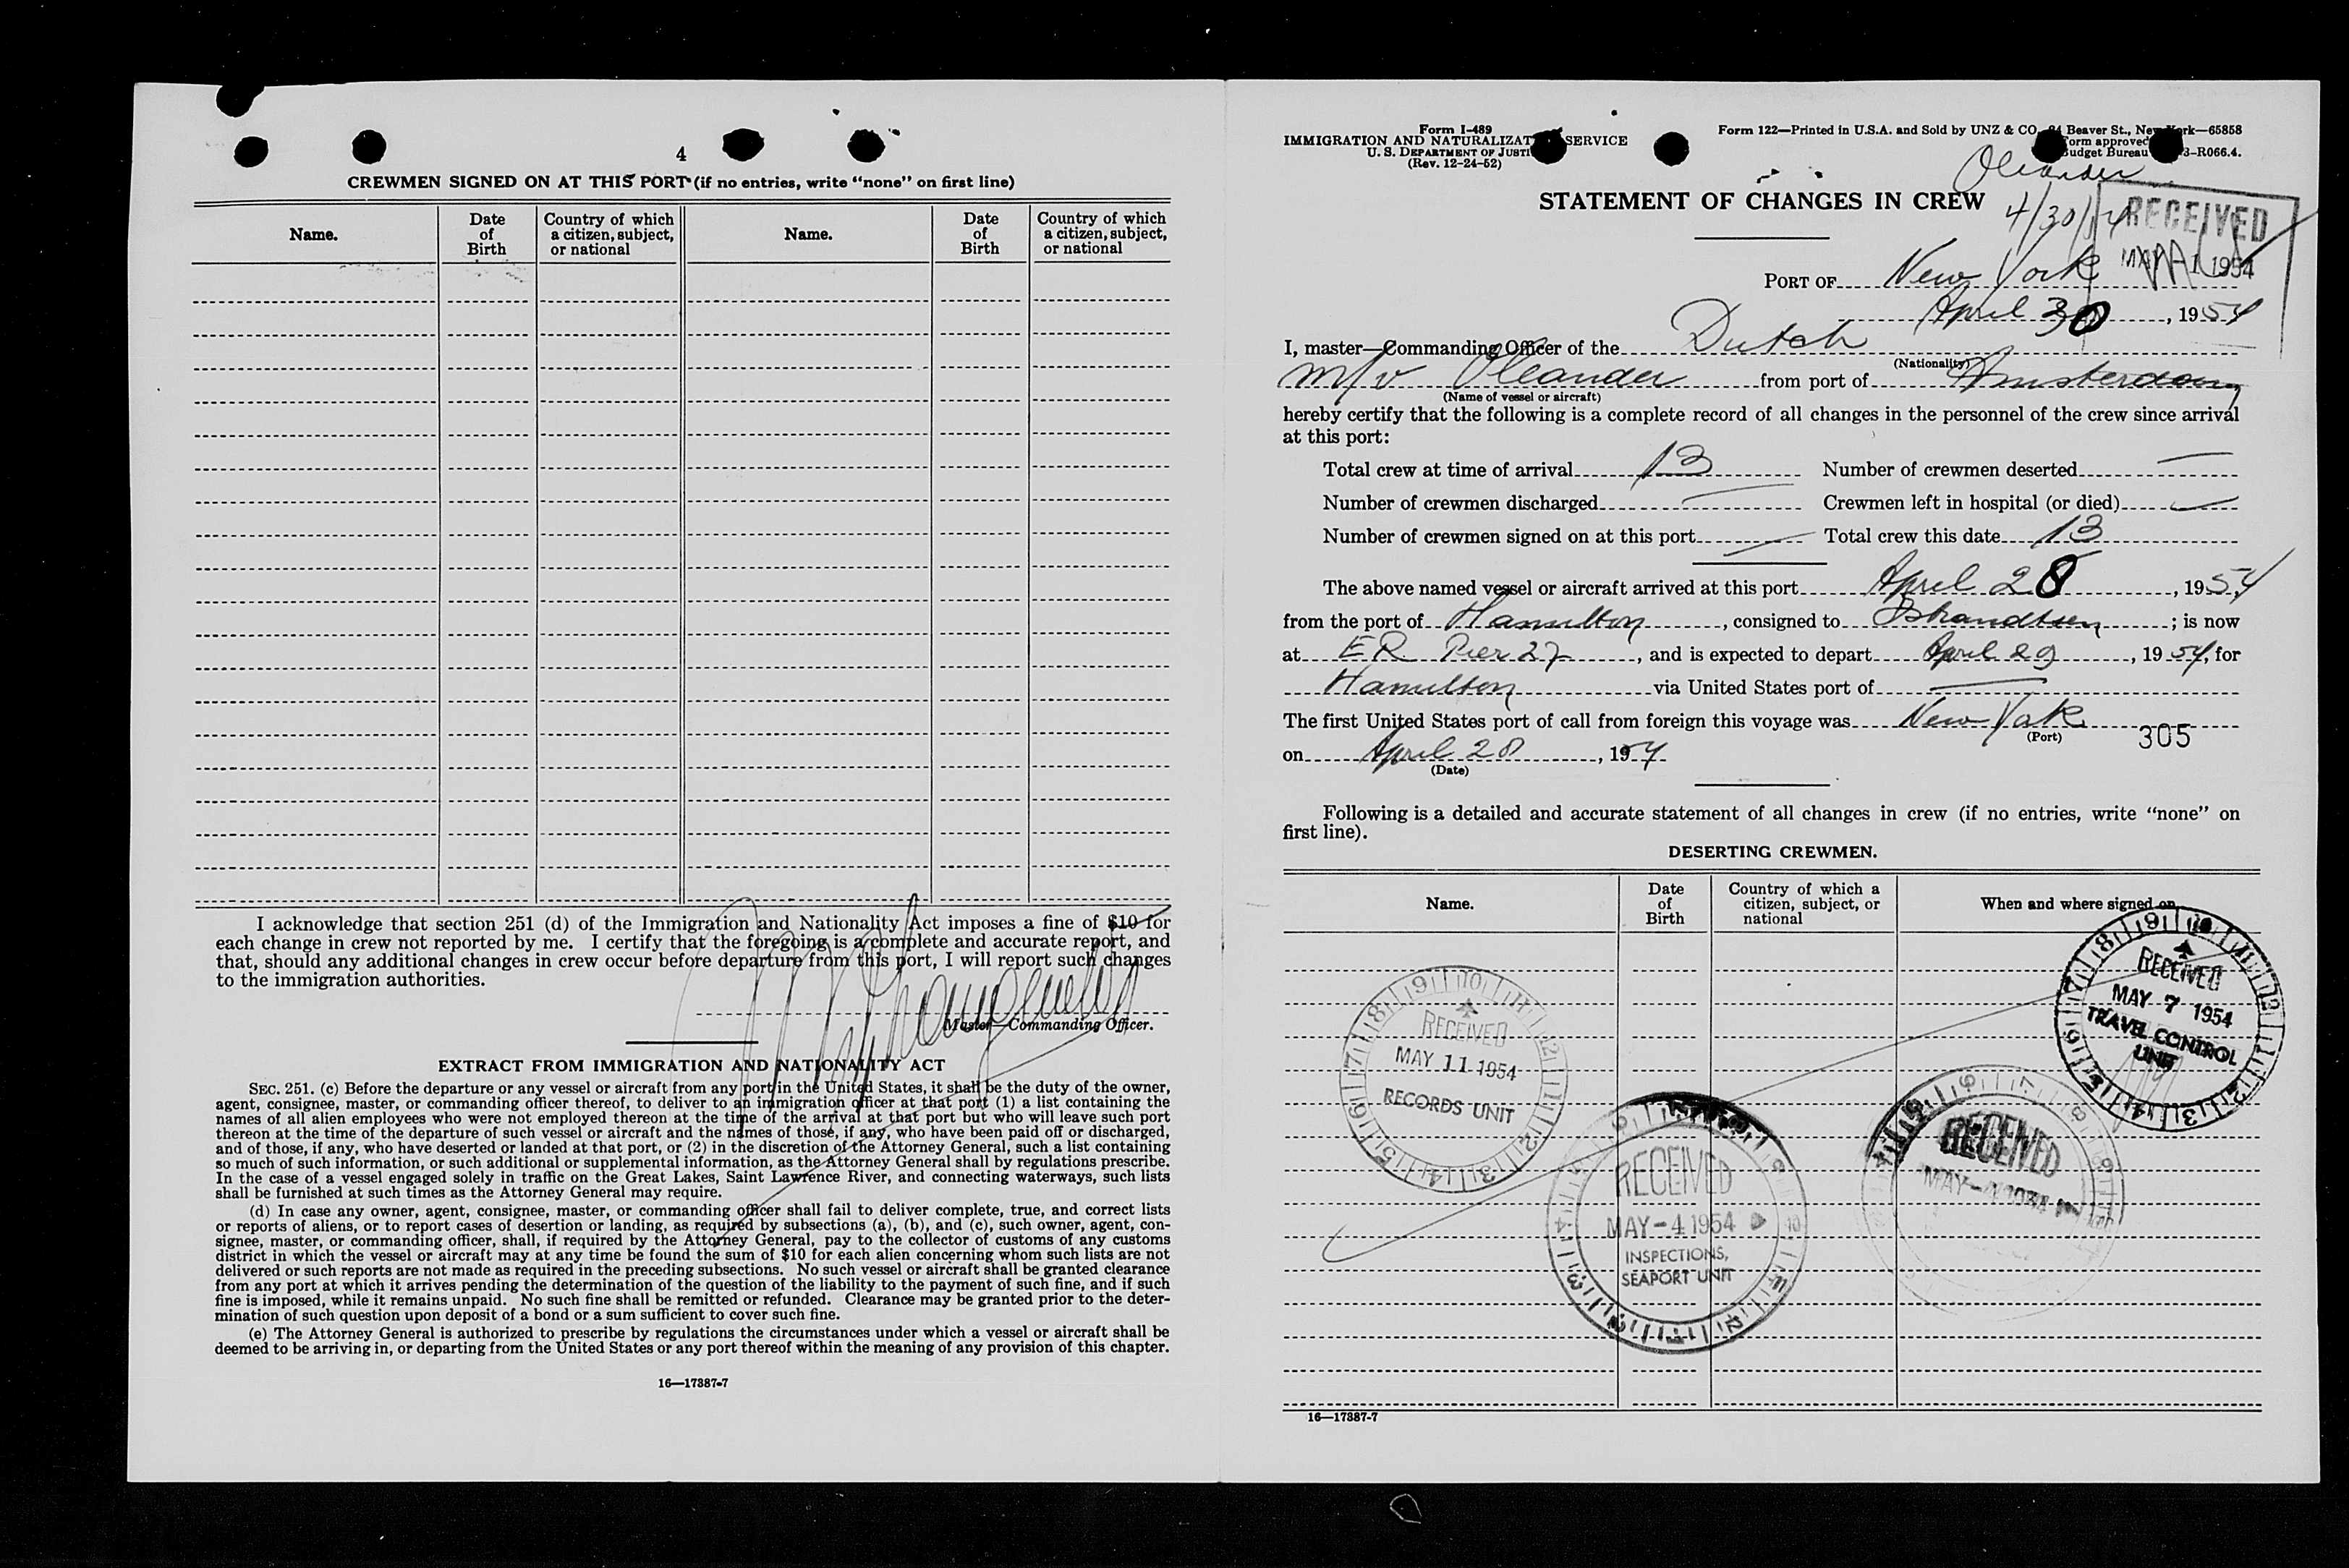 4
CREWMEN SIGNED ON AT THIS PORT (if no entries, write “none” on first line)
Name. Date of Birth Country of which a citizen, subject, or national Name. Date of Birth Country of which a citizen, subject, or national
I acknowledge that section 251 (d) of the Immigration and Nationality Act imposes a fine of $10 for
each change in crew not reported by me. I certify that the foregoing is a complete and accurate report, and
that, should any additional changes in crew occur before departure from this port, I will report such changes
to the immigration authorities.
Master—Commanding Officer.
EXTRACT FROM IMMIGRATION AND NATIONALITY ACT
SEC. 251. (c) Before the departure or any vessel or aircraft from any port in the United States, it shall be the duty of the owner,
agent, consignee, master, or commanding officer thereof, to deliver to an immigration officer at that port (1) a list containing the
names of all alien employees who were not employed thereon at the time of the arrival at that port but who will leave such port
thereon at the time of the departure of such vessel or aircraft and the names of those, if any, who have been paid off or discharged,
and of those, if any, who have deserted or landed at that port, or (2) in the discretion of the Attorney General, such a list containing
so much of such information, or such additional or supplemental information, as the Attorney General shall by regulations prescribe.
In the case of a vessel engaged solely in traffic on the Great Lakes, Saint Lawrence River, and connecting waterways, such lists
shall be furnished at such times as the Attorney General may require.
(d) In case any owner, agent, consignee, master, or commanding officer shall fail to deliver complete, true, and correct lists
or reports of aliens, or to report cases of desertion or landing, as required by subsections (a), (b), and (c), such owner, agent, con-
signee, master, or commanding officer, shall, if required by the Attorney General, pay to the collector of customs of any customs
district in which the vessel or aircraft may at any time be found the sum of $10 for each alien concerning whom such lists are not
delivered or such reports are not made as required in the preceding subsections. No such vessel or aircraft shall be granted clearance
from any port at which it arrives pending the determination of the question of the liability to the payment of such fine, and if such
fine is imposed, while it remains unpaid. No such fine shall be remitted or refunded. Clearance may be granted prior to the deter-
mination of such question upon deposit of a bond or a sum sufficient to cover such fine.
(e) The Attorney General is authorized to prescribe by regulations the circumstances under which a vessel or aircraft shall be
deemed to be arriving in, or departing from the United States or any port thereof within the meaning of any provision of this chapter.
16—17387-7
Form I-489
IMMIGRATION AND NATURALIZAT SERVICE
U. S. DEPARTMENT OF JUSTI
(Rev. 12-24-52)
Form 122—Printed in U.S.A. and Sold by UNZ & CO. Beaver St., New York—65858
orm approved
udget Bureau 3-R066.4.
Oleander
4/30/54
RECEIVED
MAY 1 1954
STATEMENT OF CHANGES IN CREW
PORT OF New York
April 30, 1954
I, master—Commanding Officer of the Dutch
(Nationality)
m/v Oleander from port of Amsterdam
(Name of vessel or aircraft)
hereby certify that the following is a complete record of all changes in the personnel of the crew since arrival
at this port:
Total crew at time of arrival 13 Number of crewmen deserted —
Number of crewmen discharged — Crewmen left in hospital (or died) —
Number of crewmen signed on at this port — Total crew this date 13
The above named vessel or aircraft arrived at this port April 28, 1954
from the port of Hamilton, consigned to ; is now
at E R. Pier 27, and is expected to depart April 29, 1954, for
Hamilton via United States port of —
The first United States port of call from foreign this voyage was New York
(Port)
305
on April 28, 1954
(Date)
Following is a detailed and accurate statement of all changes in crew (if no entries, write “none” on
first line).
DESERTING CREWMEN.
Name. Date of Birth Country of which a citizen, subject, or national When and where signed on
RECEIVED
MAY 7 1954
TRAVEL CONTROL
UNIT
RECEIVED
MAY 11 1954
RECORDS UNIT
RECEIVED
MAY-4 1954
INSPECTIONS,
SEAPORT UNIT
RECEIVED
16—17387-7